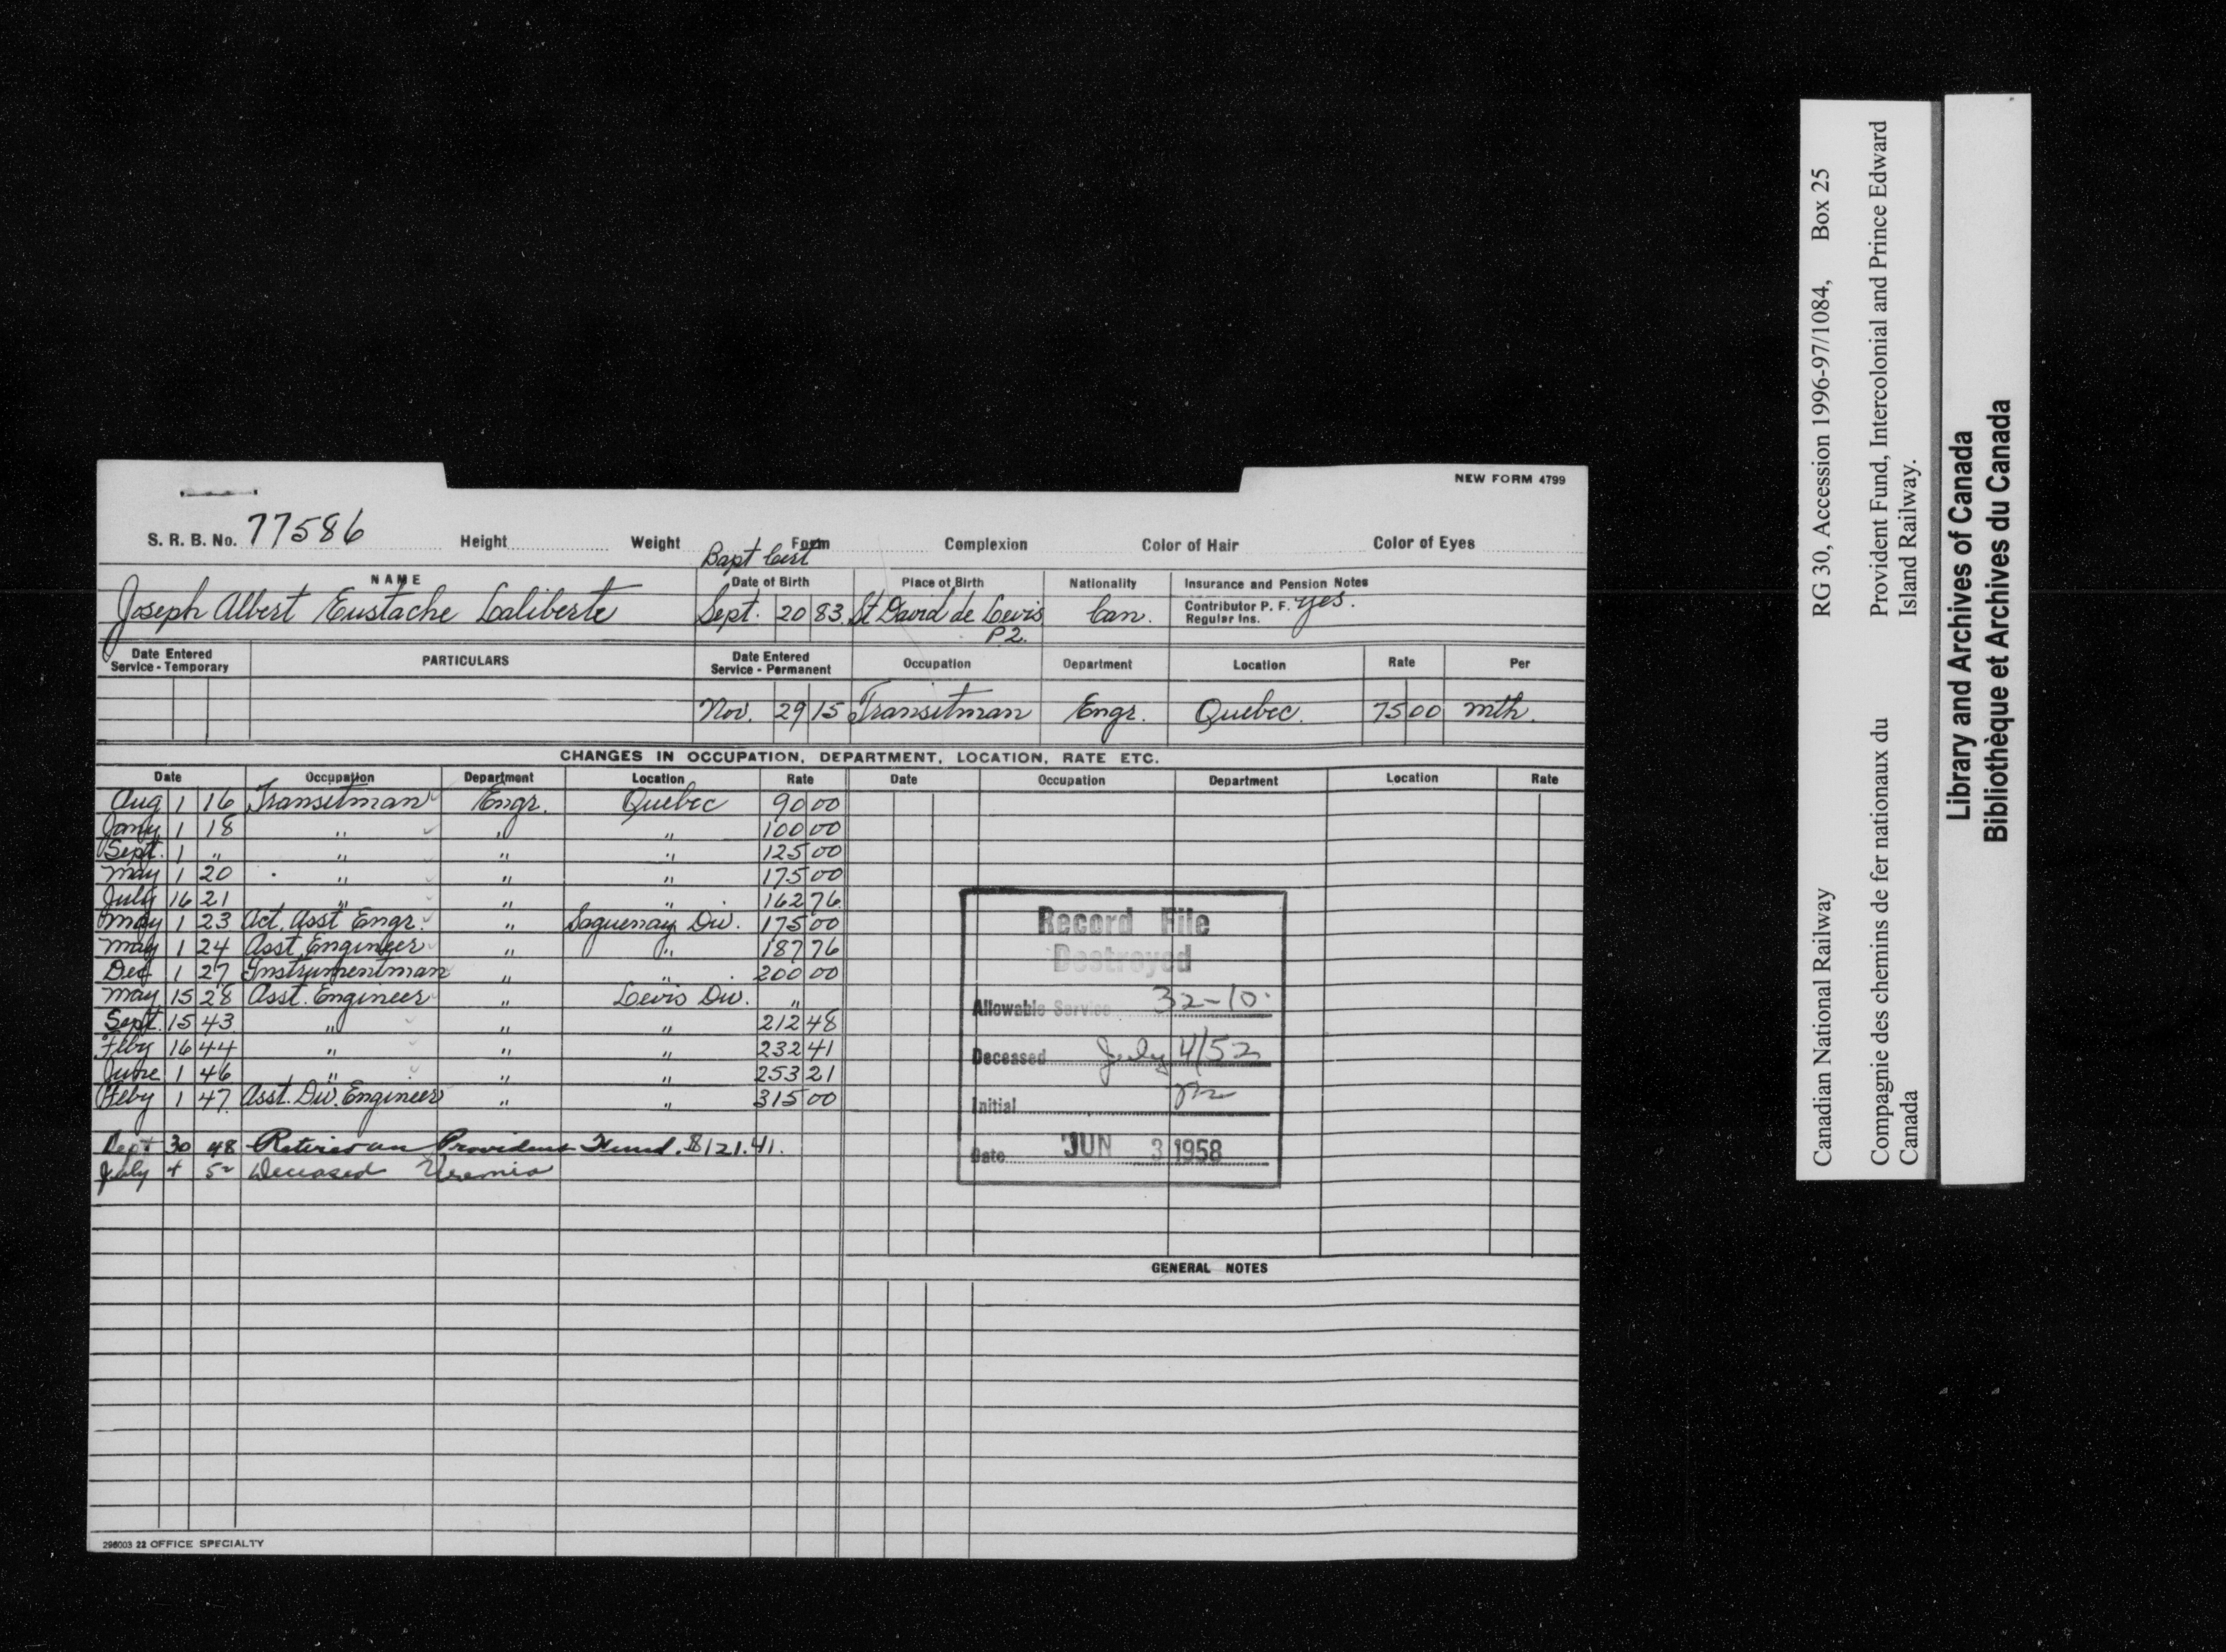 NEW FORM 4799
S. R. B. No. 77586 Height Weight Form Complexion Color of Hair Color of Eyes
Bapt Cert
NAME Date of Birth Place of Birth Nationality Insurance and Pension Notes
Joseph Albert Eustache Laliberte Sept. 20 83 St David de Levis Can. Contributor P. F. yes.
P2. Regular Ins.
Date Entered Service - Temporary PARTICULARS Date Entered Service - Permanent Occupation Department Location Rate Per
Nov. 29 15 Transitman Engr. Quebec. 75 00 mth.
CHANGES IN OCCUPATION, DEPARTMENT, LOCATION, RATE ETC.
Date Occupation Department Location Rate Date Occupation Department Location Rate
Aug 1 16 Transitman Engr. Quebec 90 00
Jany 1 18 " " " 100 00
Sept. 1 " " " " 125 00
May 1 20 " " " 175 00
July 16 21 " " " 162 76
May 1 23 Act. Asst Engr. " Saguenay Div. 175 00
May 1 24 Asst Engineer " " 187 76
Dec 1 27 Instrumentman " " 200 00
May 15 28 Asst. Engineer " Levis Div. "
Sept. 15 43 " " " 212 48
Feby 16 44 " " " 232 41
June 1 46 " " " 253 21
Feby 1 47 Asst. Div. Engineer " " 315 00
Sept 30 48 Retired on Provident Fund. $121.41.
July 4 52 Deceased Uremia
Record File
Destroyed
Allowable Service 32-10
Deceased July 4/52
Initial
Date JUN 3 1958
GENERAL NOTES
296003 22 OFFICE SPECIALTY
Canadian National Railway RG 30, Accession 1996-97/1084, Box 25
Compagnie des chemins de fer nationaux du Provident Fund, Intercolonial and Prince Edward
Canada Island Railway.
Library and Archives of Canada
Bibliothèque et Archives du Canada